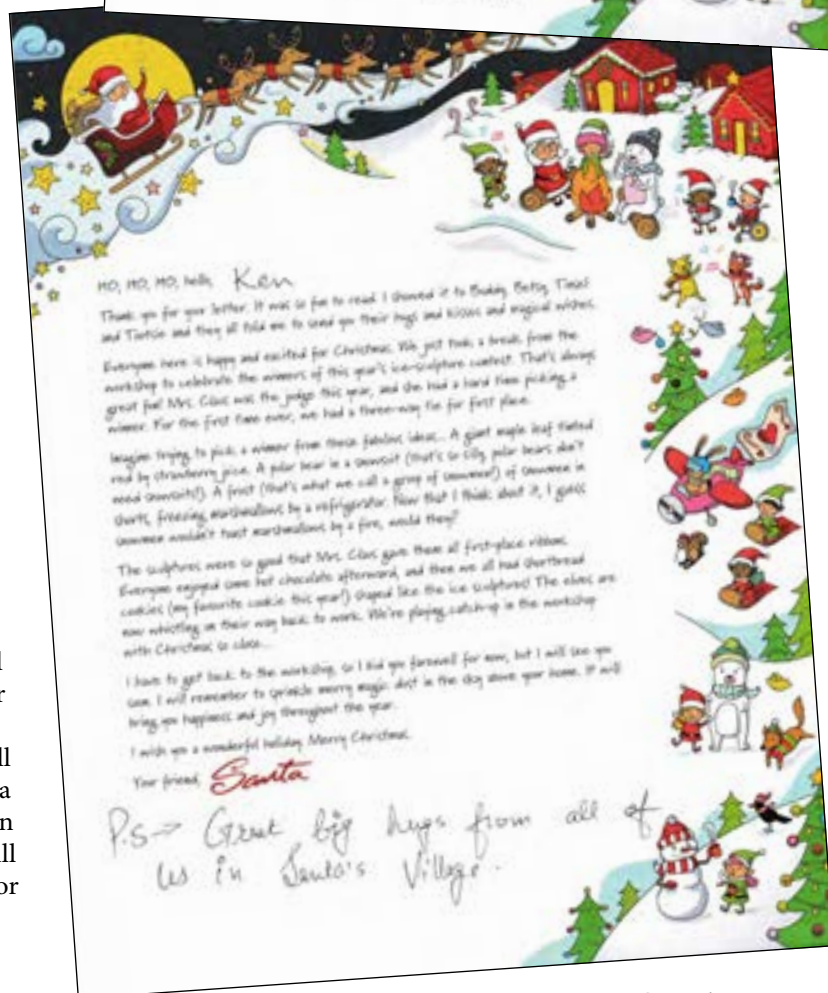 HO, HO, HO, hello, Ken
Thank you for your letter. It was so fun to read. I showed it to Buddy, Betsy, Tinsel
and Tootsie and they all told me to send you their hugs and kisses and magical wishes.
Everyone here is happy and excited for Christmas. We just took a break from the
workshop to celebrate the winners of this year's ice-sculpture contest. That's always
great fun! Mrs. Claus was the judge this year, and she had a hard time picking a
winner. For the first time ever, we had a three-way tie for first place.
Imagine trying to pick a winner from these fabulous ideas... A giant maple leaf tinted
red by strawberry juice. A polar bear in a snowsuit (that's so silly, polar bears don't
need snowsuits!). A frost (that's what we call a group of snowmen!) of snowmen in
shorts, freezing marshmallows by a refrigerator. Now that I think about it, I guess
snowmen wouldn't toast marshmallows by a fire, would they?
The sculptures were so good that Mrs. Claus gave them all first-place ribbons.
Everyone enjoyed some hot chocolate afterward, and then we all had shortbread
cookies (my favourite cookie this year!) shaped like the ice sculptures! The elves are
now whistling on their way back to work. We're playing catch-up in the workshop
with Christmas so close...
I have to get back to the workshop, so I bid you farewell for now, but I will see you
soon. I will remember to sprinkle merry magic dust in the sky above your home. It will
bring you happiness and joy throughout the year.
I wish you a wonderful holiday. Merry Christmas!
Your friend, Santa
P.S→ Great big hugs from all of
us in Santa's Village.